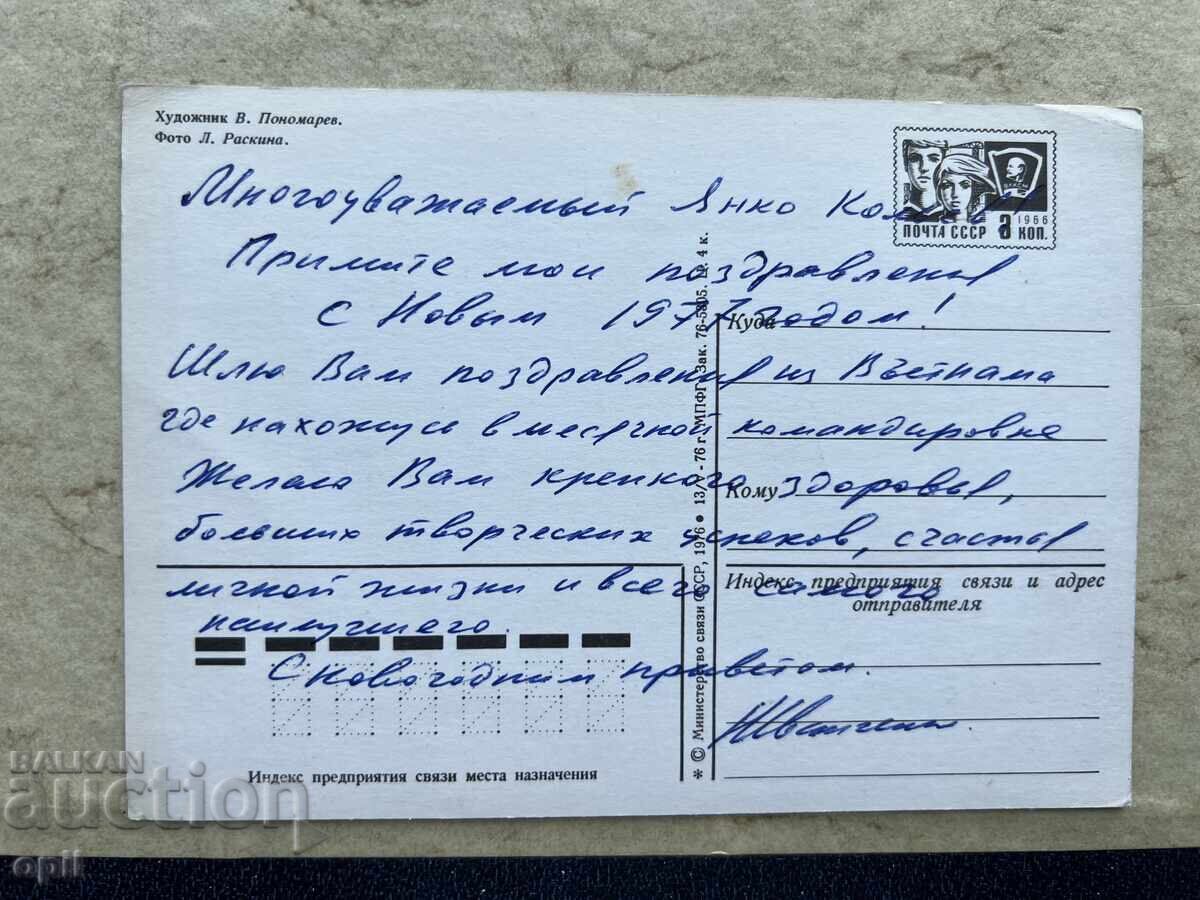 Художник В. Пономарев.
Фото Л. Раскина.
ПОЧТА СССР 1966 3 КОП.
ВЛКСМ
Многоуважаемый Янко
Примите мои поздравления
с Новым 1977 годом!
Шлю Вам поздравления из Вьетнама
где нахожусь в месячной командировке
Желаю Вам крепкого здоровья,
больших творческих успехов, счастья
личной жизни и всего самого
наилучшего.
С новогодним приветом.
Куда
Кому
Индекс предприятия связи и адрес
отправителя
Индекс предприятия связи места назначения
* © Министерство связи СССР, 1976 • 13/V-76 г. МПФГ. Зак. 76-5805. Ц. 4 к.
BALKAN
auction
opil